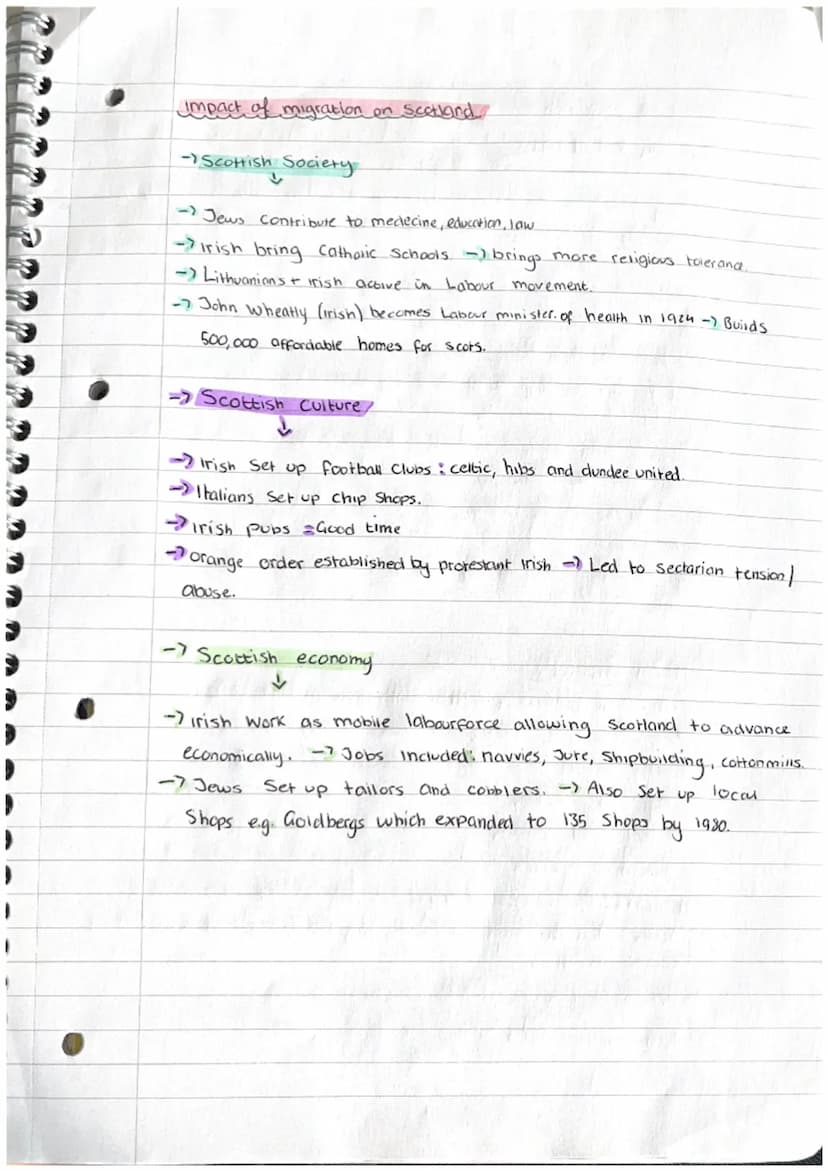 impact of migration on Scotland
→ Scottish Society
↓
→ Jews contribute to medecine, education, law
→ Irish bring Catholic Schools → brings more religious tolerance.
→ Lithuanians + irish active in Labour movement.
→ John Wheatly (irish) becomes Labour minister of health in 1924 → Builds
500,000 affordable homes for scots.
→ Scottish Culture
↓
→ Irish Set up football clubs: celtic, hibs and dundee united.
→ Italians Set up chip Shops.
→ Irish pubs = Good time
→ orange order established by protestant Irish → Led to sectarian tension/
abuse.
→ Scottish economy
↓
→ Irish work as mobile labourforce allowing Scotland to advance
economically. → Jobs included: navvies, Jute, Shipbuilding, cotton mills.
→ Jews Set up tailors and cobblers. → Also Set up local
Shops e.g. Goldbergs which expanded to 135 Shops by 1980.